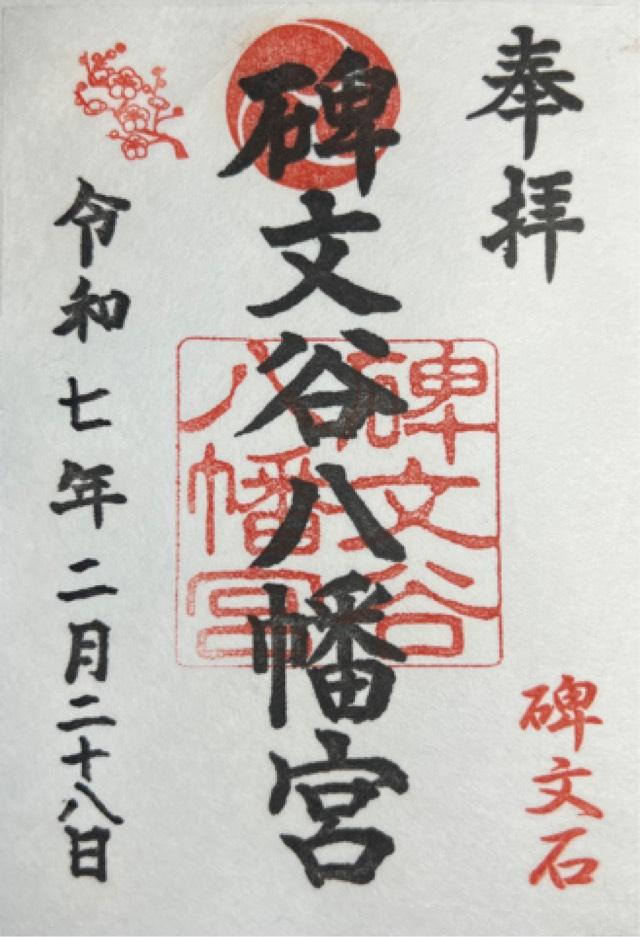 奉拝
碑文石
碑文谷八幡宮
碑文谷
八幡宮
令和七年二月二十八日